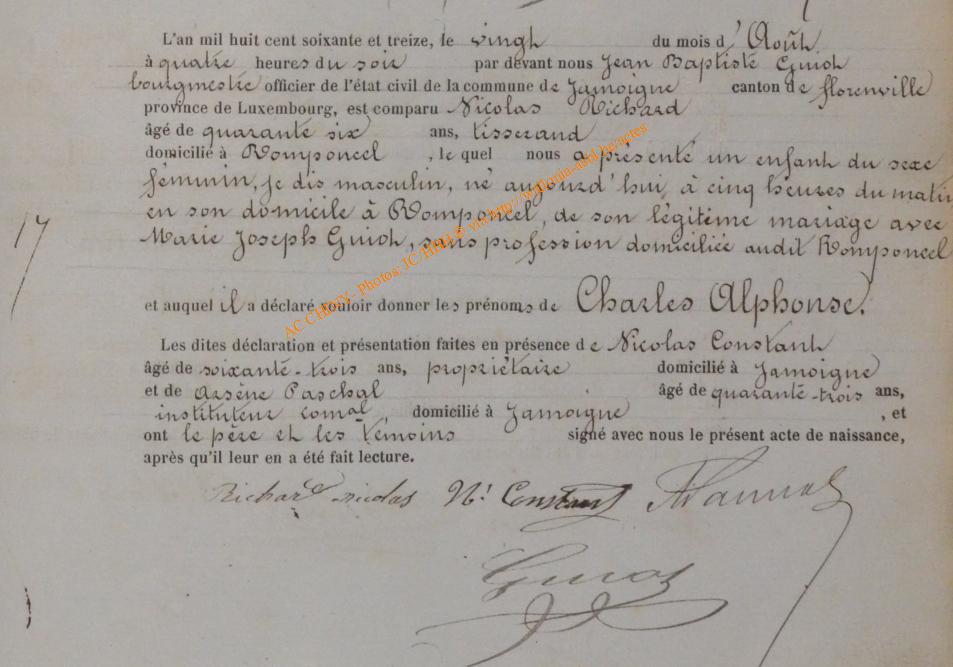 L'an mil huit cent soixante et treize, le vingt du mois d'Août
à quatre heures du soir par devant nous Jean Baptiste Guiot
bourgmestre officier de l'état civil de la commune de Jamoigne canton de florenville
province de Luxembourg, est comparu Nicolas Richard
âgé de quarante six ans, tisserand
domicilié à Romponcel, le quel nous a présenté un enfant du sexe
féminin, je dis masculin, né aujourd'hui à cinq heures du matin
en son domicile à Romponcel, de son légitime mariage avec
17
Marie Joseph Guiot, sans profession domiciliée audit Romponcel
et auquel il a déclaré vouloir donner les prénoms de Charles Alphonse.
Les dites déclaration et présentation faites en présence de Nicolas Constant
âgé de soixante-trois ans, propriétaire domicilié à Jamoigne
et de Arsène Paschal âgé de quarante-trois ans,
instituteur comal, domicilié à Jamoigne, et
ont le père et les témoins signé avec nous le présent acte de naissance,
après qu'il leur en a été fait lecture.
Richard nicolas Ns Constant
Guiot